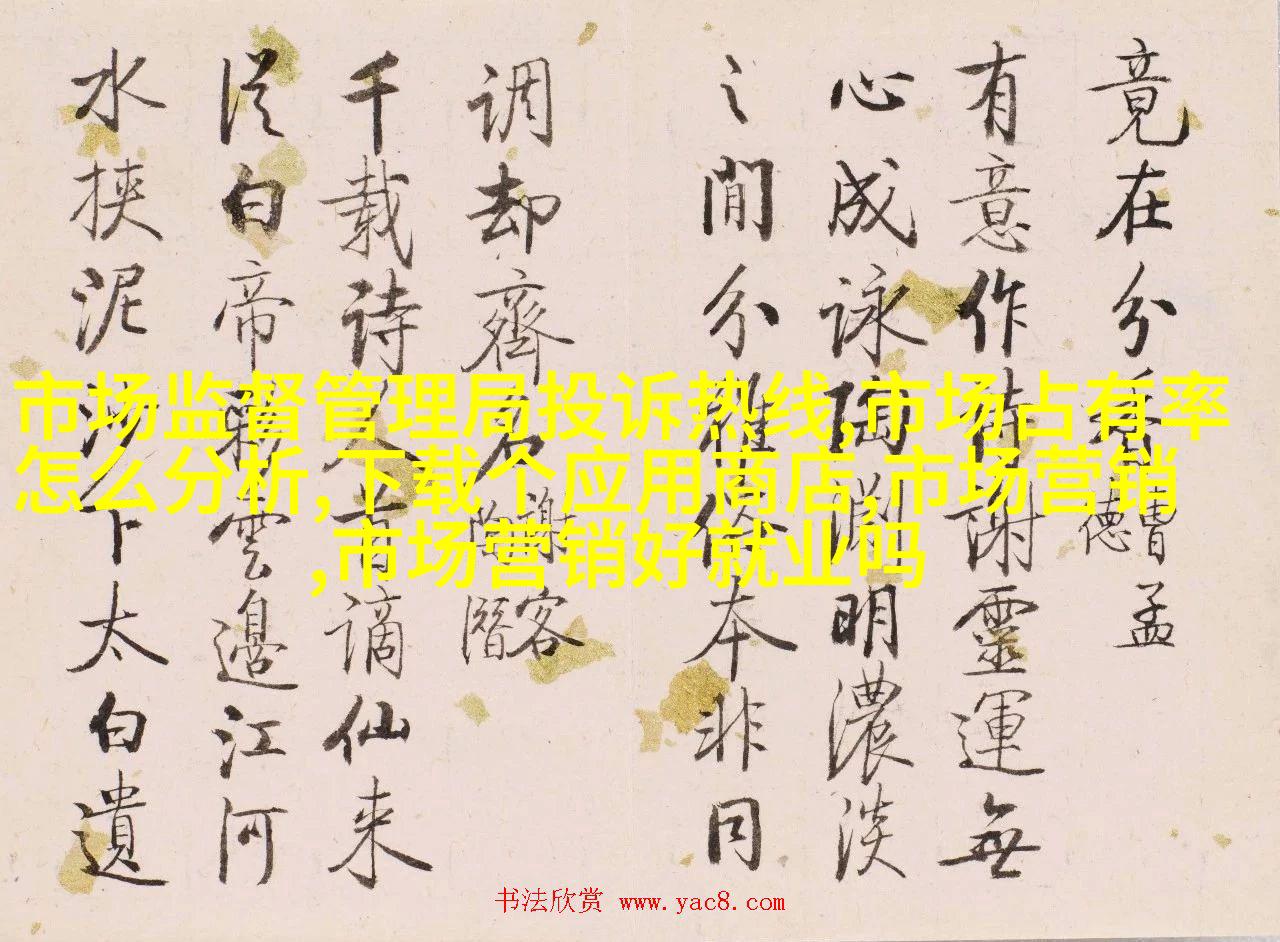 竟在分
曹孟
德
有意作詩謝靈運無
心成詠陶淵明濃淡
之間分雅俗本非同
調却齊名
謝客
陶潛
千載詩人首謫仙来
從白帝彩雲邊江河
水挾泥沙下太白遺
市场监督管理局投诉热线,市场占有率
怎么分析,下载个应用商店,市场营销
,市场营销好就业吗
书法欣赏 www.yac8.com